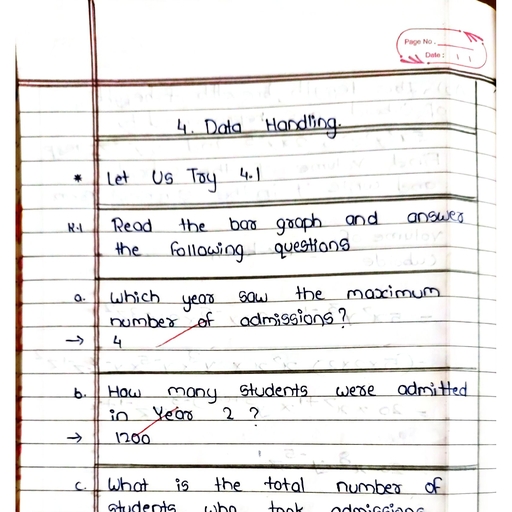 Page No.
Date :
4. Data Handling.
* Let Us Try 4.1
K.1 Read the bar graph and answer
the following questions
a. Which year saw the maximum
number of admissions?
→ 4
b. How many students were admitted
in Year 2 ?
→ 1200
c. What is the total number of
students who took admissions